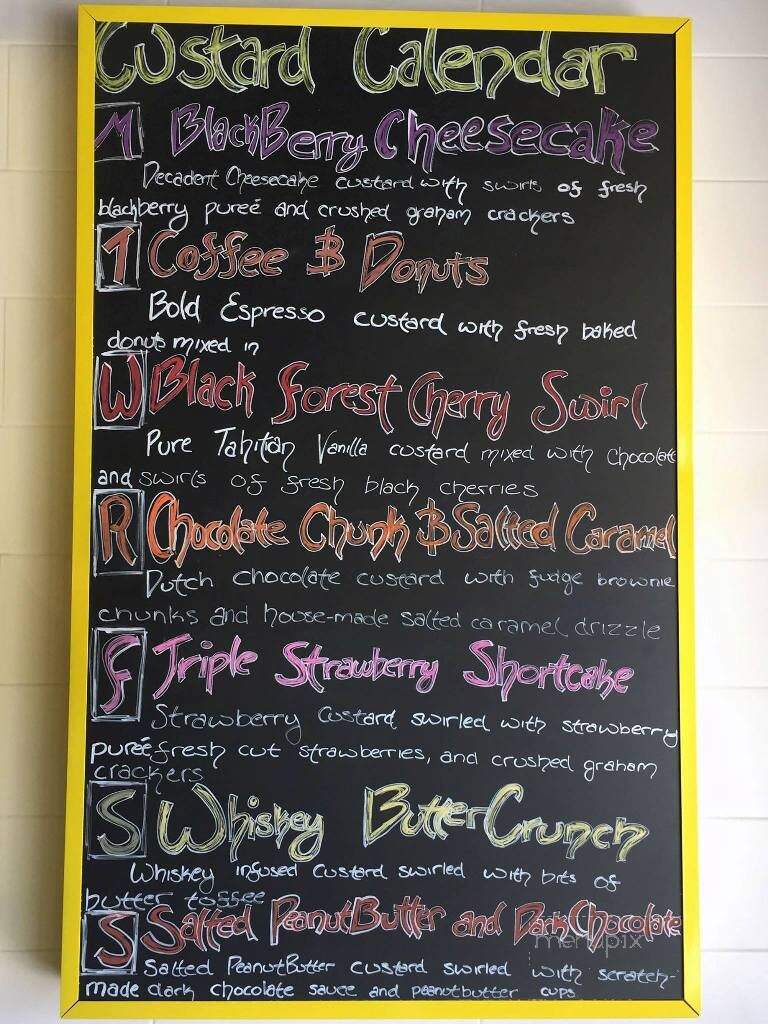 Custard Calendar
M BlackBerry Cheesecake
Decadent Cheesecake custard with swirls of fresh
blackberry pureé and crushed graham crackers
T Coffee & Donuts
Bold Espresso custard with fresh baked
donuts mixed in
W Black Forest Cherry Swirl
Pure Tahitian Vanilla custard mixed with chocolate
and swirls of fresh black cherries
R Chocolate Chunk & Salted Caramel
Dutch chocolate custard with fudge brownie
chunks and house-made salted caramel drizzle
F Triple Strawberry Shortcake
Strawberry custard swirled with strawberry
pureé fresh cut strawberries, and crushed graham
crackers
S Whiskey ButterCrunch
Whiskey infused custard swirled with bits of
butter toffee
S Salted PeanutButter and DarkChocolate
menupix
Salted PeanutButter custard swirled with scratch-
made dark chocolate sauce and peanutbutter cups